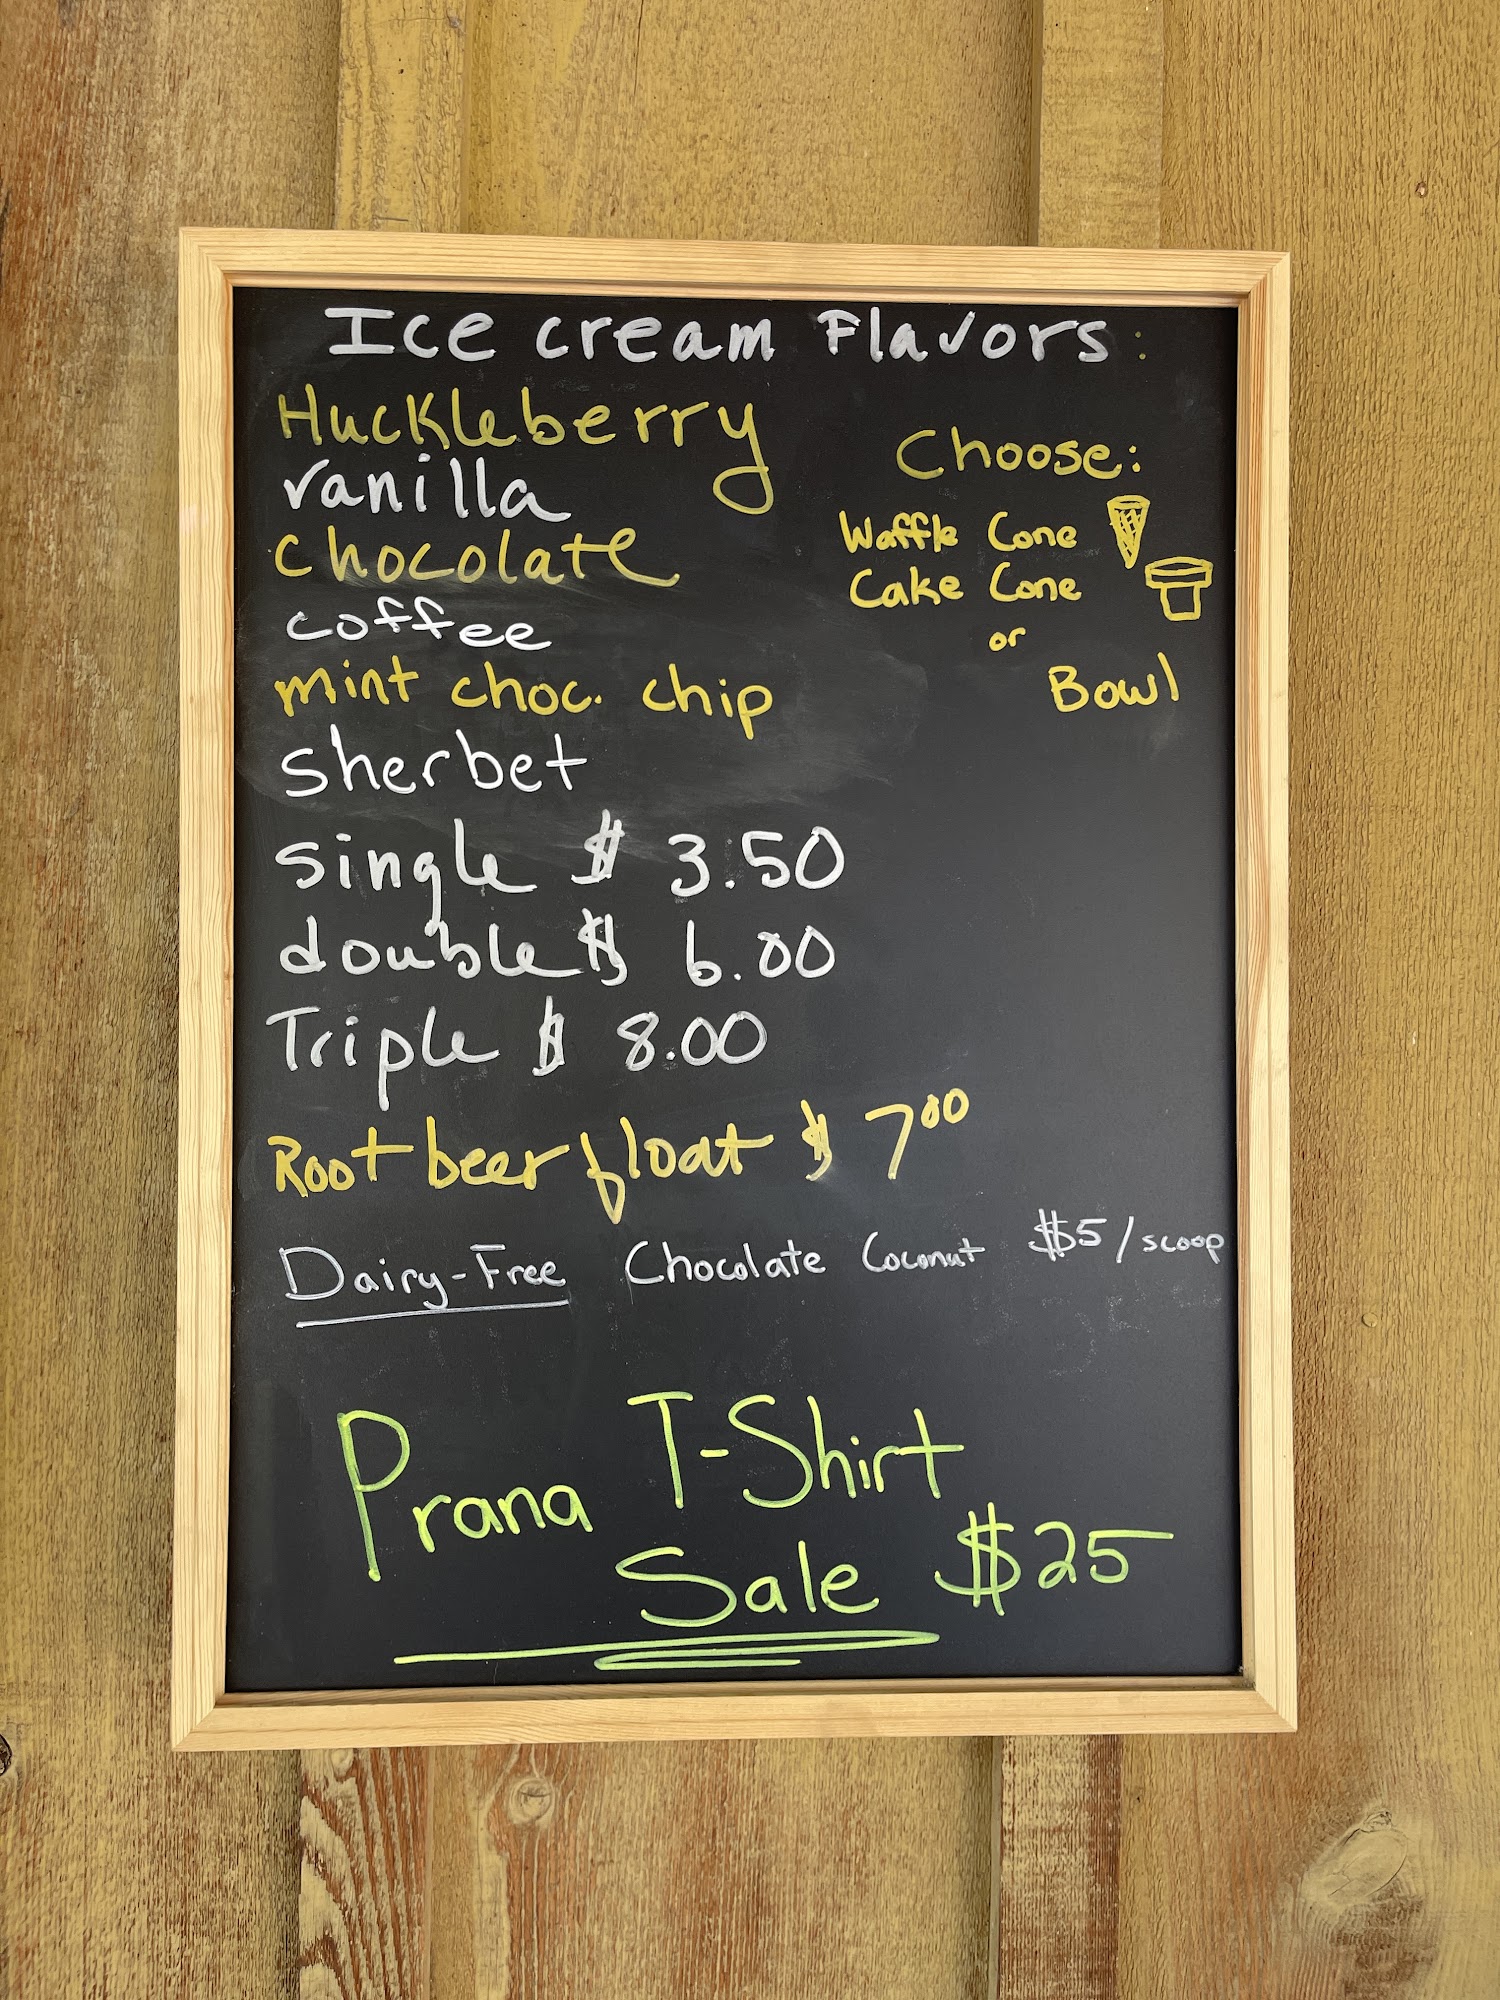 Ice cream Flavors:
Huckleberry
vanilla
chocolate
coffee
mint choc. chip
sherbet
Choose:
Waffle Cone
Cake Cone
or
Bowl
single $ 3.50
double $ 6.00
Triple $ 8.00
Root beer float $ 7.00
Dairy-Free Chocolate Coconut $5/scoop
Prana T-Shirt
Sale $25